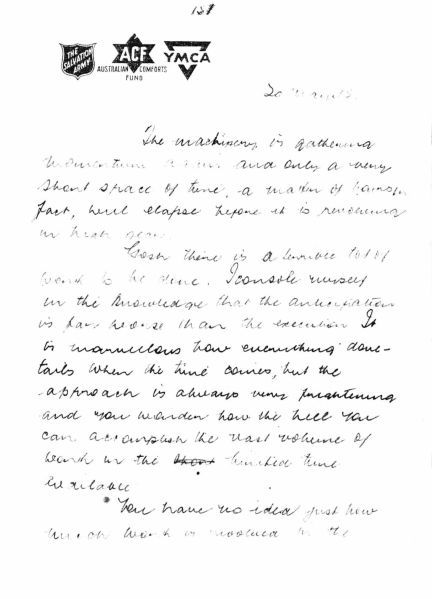 131
THE SALVATION ARMY
ACF
AUSTRALIAN COMFORTS FUND
YMCA
20
The machinery is gathering
momentum again and only a very
short space of time, a matter of
fact, will elapse before it is revolving
in high gear.
Gosh there is a terrible lot of
work to be done. I console myself
in the knowledge that the anticipation
is far worse than the execution It
is marvellous how everything dove-
tails when the time comes, but the
approach is always very frightening
and you wonder how the hell you
can accomplish the vast volume of
work in the short limited time
available
You have no idea just how
much work is involved in the